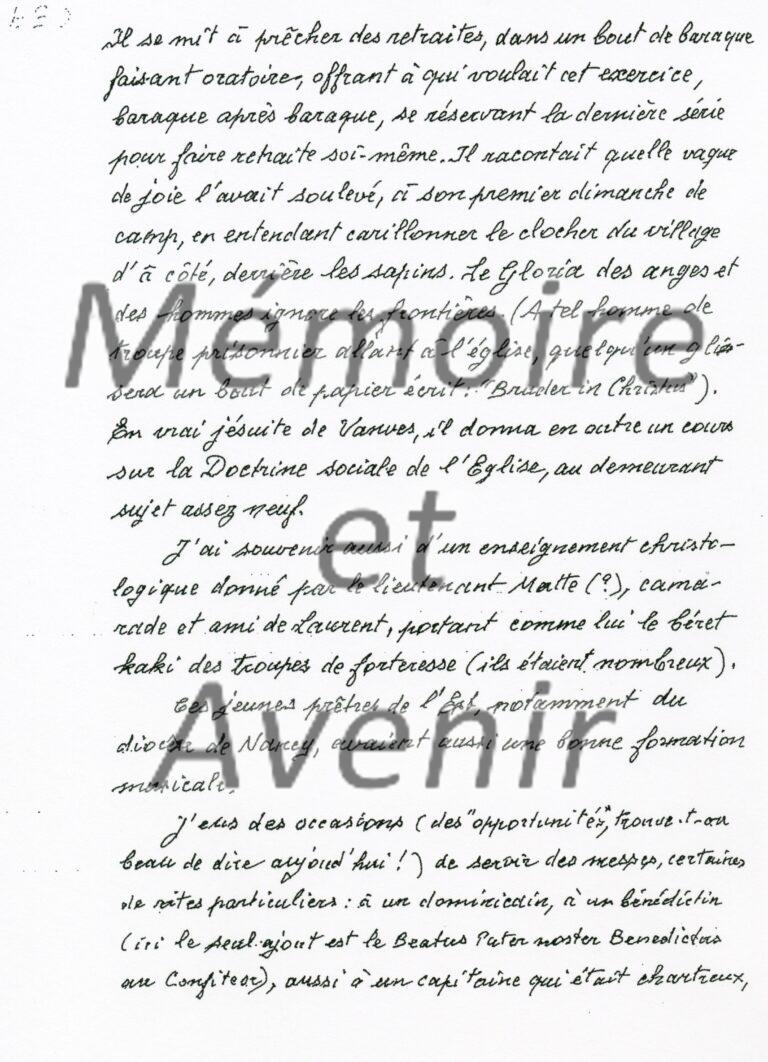 Il se mit à prêcher des retraites, dans un bout de baraque
faisant oratoire, offrant à qui voulait cet exercice,
baraque après baraque, se réservant la dernière série
pour faire retraite soi-même. Il racontait quelle vague
de joie l'avait soulevé, à son premier dimanche de
camp, en entendant carillonner le clocher du village
d'à côté, derrière les sapins. Le Gloria des anges et
des hommes ignore les frontières. (A tel homme de
troupe prisonnier allant à l'église, quelqu'un glis-
sera un bout de papier écrit: "Bruder in Christus").
En vrai jésuite de Vanves, il donna en outre un cours
sur la Doctrine sociale de l'Eglise, au demeurant
sujet assez neuf.
J'ai souvenir aussi d'un enseignement christo-
logique donné par le lieutenant Matte (?), cama-
rade et ami de Laurent, portant comme lui le béret
kaki des troupes de forteresse (ils étaient nombreux).
Ces jeunes prêtres de l'Est, notamment du
diocèse de Nancy, avaient aussi une bonne formation
musicale.
J'eus des occasions (des "opportunités", trouve-t-on
beau de dire aujourd'hui!) de servir des messes, certaines
de rites particuliers: à un dominicain, à un bénédictin
(ici le seul ajout est le Beatus Pater noster Benedictus
au Confiteor), aussi à un capitaine qui était chartreux,
Mémoire
et
Avenir